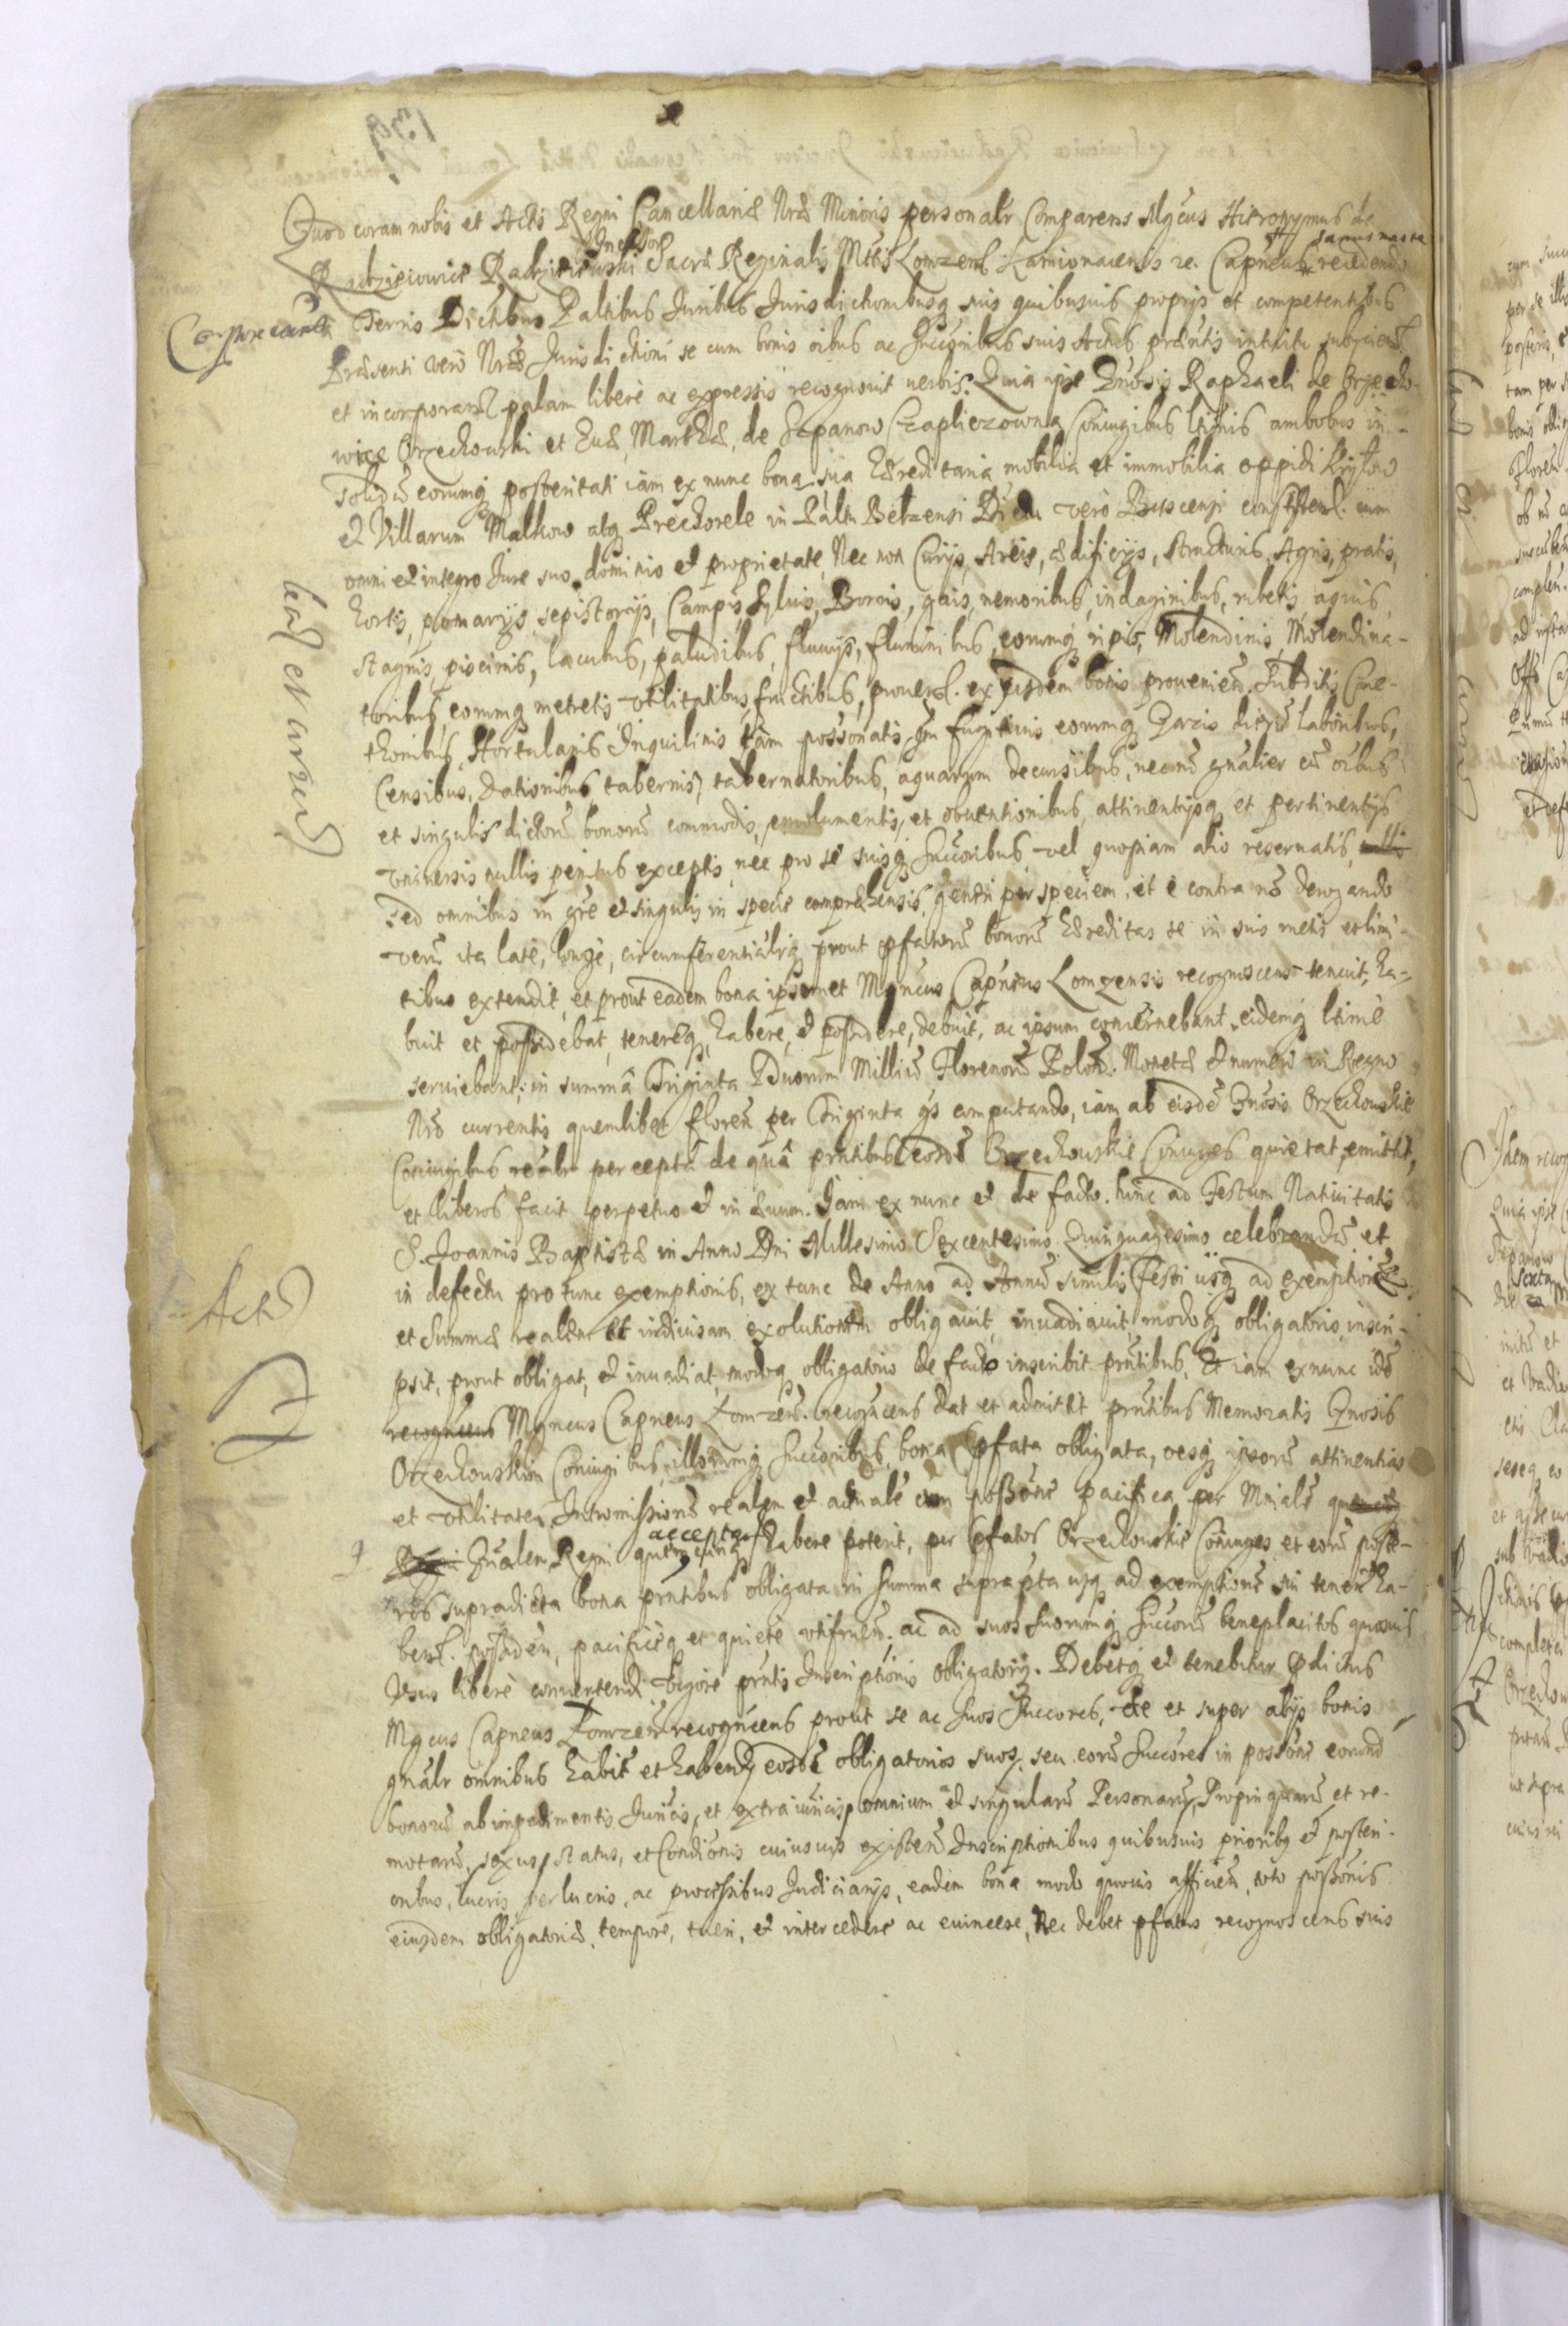 Quod coram nobis et Actis Regni Cancellariæ Nræ Minoris personalr Comparens Mgcus Hieronymus de
Radzieiowice Radzieiowski Incisor Sacræ Reginalis Mttis Lomzen Kamionacensis ze. Capneus sanus mente recedendo
Corpore
Terris Dictibus Paltibus Iuribus Iurisdictionibusq suis quibusuis proprys et competentibus
Præsenti vero Nræ Iurisdictioni se cum bonis oibus ac Succoribus suis Actus præntis intuitu subycien
et incorporan palam libere ac expressis recognouit verbis. Quia ipse Gnosis Raphaeli de Orzecho-
wice Orzechowski et Euæ Marthæ, de Szpanow Czapliczowna Coniugibus ltimis ambobus in-
solidũ eorumq posteritati iam ex nunc bona sua hæreditaria mobilia et immobilia oppidi Kryłow
et Villarum Malkow atq Prechorele in Paltu Belzensi Dictu vero Buscensi consisten. cum
omni et integro Iure suo, dominio et proprietate, Nec non Curys, Areis, ædificys, structuris, Agris, pratis,
hortis, pomarys, sepistorys, Campis, Syluis, Borris, gais, nemoribus, indaginibus, rubetis, aquis,
stagnis, piscinis, lacubus, paludibus, fluuys, fluminibus, eorumq ripis, Molendinis, Molendina-
toribus, eorumq metretis vtilitatibus, fructibus, prouen. ex ysdem bonis prouenien. Subditis Cme-
thonibus, Hortulanis Inquilinis tam possonatis qm fugitiuis eorumq laboribus,
Censibus, Dationibus tabernis, tabernatoribus, aquarum decursibus, necnõ gnalier cũ oibus
et singulis dictorũ bonorũ commodis, emolumentis, et obuentionibus, attinentysq et pertinentys
vniuersis nullis penitus exceptis, nec pro se suisq Succoribus vel quopiam alio reseruatis,
sed omnibus in gre et singulis in specie comprehensis, per speciem, et e contra nõ derogando
verũ ita late, longe, circumferentialrq prout pfatorũ bonorũ hæreditas se in suis metis et limi-
tibus extendit, et prout eadem bona ipsemet Mgncus Capneus Lomzensis recognoscens tenuit, ha-
buit et possidebat, tenereq, habere, et possidere, debuit, ac ipsum concernebant, eidemq ltime
seruiebant: in summa Triginta Duorum Milliũ Florenorũ Polon. Monetæ et numeri in Regno
Nro currentis quemlibet floren per Triginta gs computando, iam ab eisdẽ Gnosis Orzechowskie
Coniugibus realr percepta de qua prntibus eosdẽ Orzechowskie Coniuges quietat, emittit,
et liberos facit perpetuo et in æuum. Iam ex nunc et de facto. hinc ad Festum Natiuitatis
S. Ioannis Baptistæ in Anno Dni Millesimo Sexcentesimo Quinquagesimo celebrandũ et
in defectu pro tunc exemptionis, ex tunc de Anno ad Annũ similis Festi usq ad exemptionẽ
et Summæ realem et indiuisam exolutionem obligauit, inuadiauit, modoq obligatorio, inscri-
psit, prout obligat, et inuadiat, modoq obligatorio de facto inscribit prntibus, Et iam ex nunc idẽ
recogncens Mgncus Capneus Lomzen. recogncens dat et admittit prntibus Memoratis Gnosis
Orzechowskim Coniugibus, illorumq Succoribus, bona pfata obligata, oesq ipsorũ attinentias
et vtilitates, Intromissionẽ realem et actualẽ cum possone pacifica per Mnialẽ
Gnalem Regni quemcunq acceptare habere poterit, per pfatos Orzechowskie Coniuges et eorũ poste-
ros supradicta bona prntibus obligata in summa suprapta usq ad exemptionẽ sui tenen ha-
ben. possiden, pacificeq et quiete vtifruen. ac ad suos suorumq Succorũ beneplacitos quosuis
Vsus libere conuertendi. Vigore prntis Inscriptionis obligatoriæ. Debetq et tenebitur pdictus
Mgcus Capneus Lomzen recogncens prout se ac suos Succores, de et super alys bonis
gnalr omnibus habit et habend eosdẽ obligatorios suos, seu eorũ Succores in possone eorund
bonorũ ab impedimentis Iuricis, et extraiuricis, omnium et singularũ Personarũ, Propinquarũ et re-
motarũ, sexus, status, et Condionis cuiusuis existen Inscriptionibus quibusuis prioribq et posteri-
oribus, lucris, perlucris, ac processibus Iudiciarys, eadem bona modo quouis afficien, toto possonis
eiusdem obligatoriæ, tempore, tueri, et intercedere ac euincere, Nec debet pfatus recognoscens suis